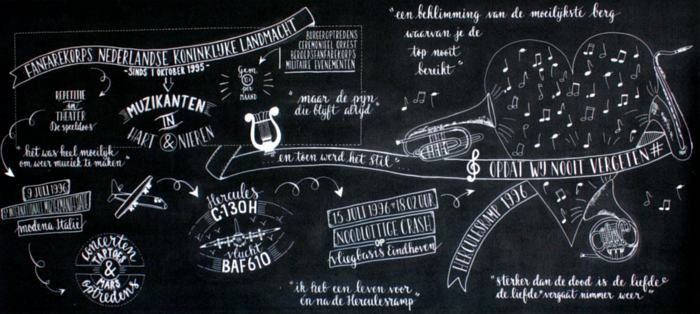 FANFAREKORPS NEDERLANDSE KONINKLIJKE LANDMACHT
-SINDS 1 OKTOBER 1995-
BURGEROPTREDENS
CEREMONIEEL ORKEST
BEROEPSFANFAREKORPS
MILITAIRE EVENEMENTEN
Gem
per
MAAND
REPETITIE
in
THEATER
De Speeldoos
MUZIKANTEN
IN
HART & NIEREN
"het was heel moeilijk
om weer muziek te maken"
"maar de pijn
die blijft altijd"
"een beklimming van de moeilijkste berg
waarvan je de
top nooit
bereikt"
en toen werd het stil...
OPDAT WIJ NOOIT VERGETEN #
9 JULI 1996
modena Italië
concerten
TAPTOES
&
MARS
optredens
Hercules
C-130H
vlucht
BAF610
15 JULI 1996-18.02 UUR
NOODLOTTIGE CRASH
OP
vliegbasis Eindhoven
HERCULESRAMP 1996
"ik heb een leven voor
én na de Herculesramp"
"sterker dan de dood is de liefde
de liefde vergaat nimmer weer"